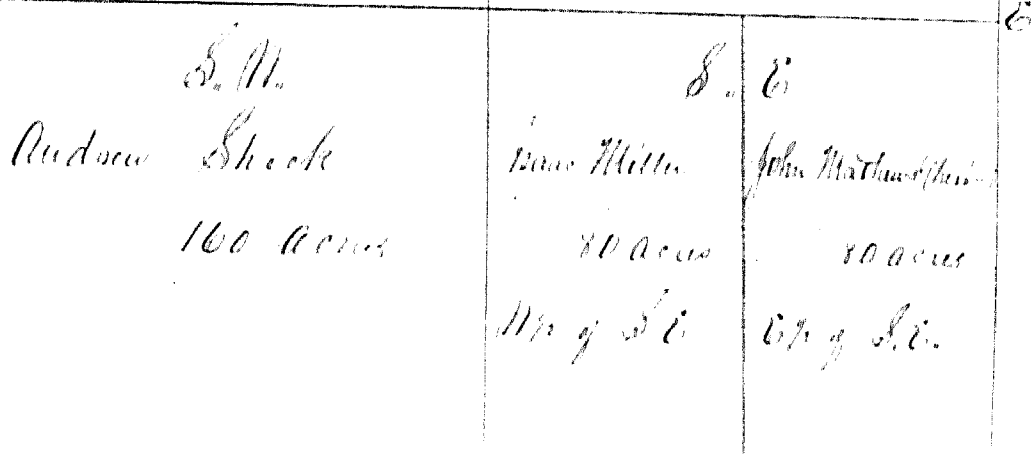 S. W.
Andrew Shock
160 acres
S. E
Isaac Miller
80 acres
W½ of S E
John
80 acres
E½ of S.E.
E